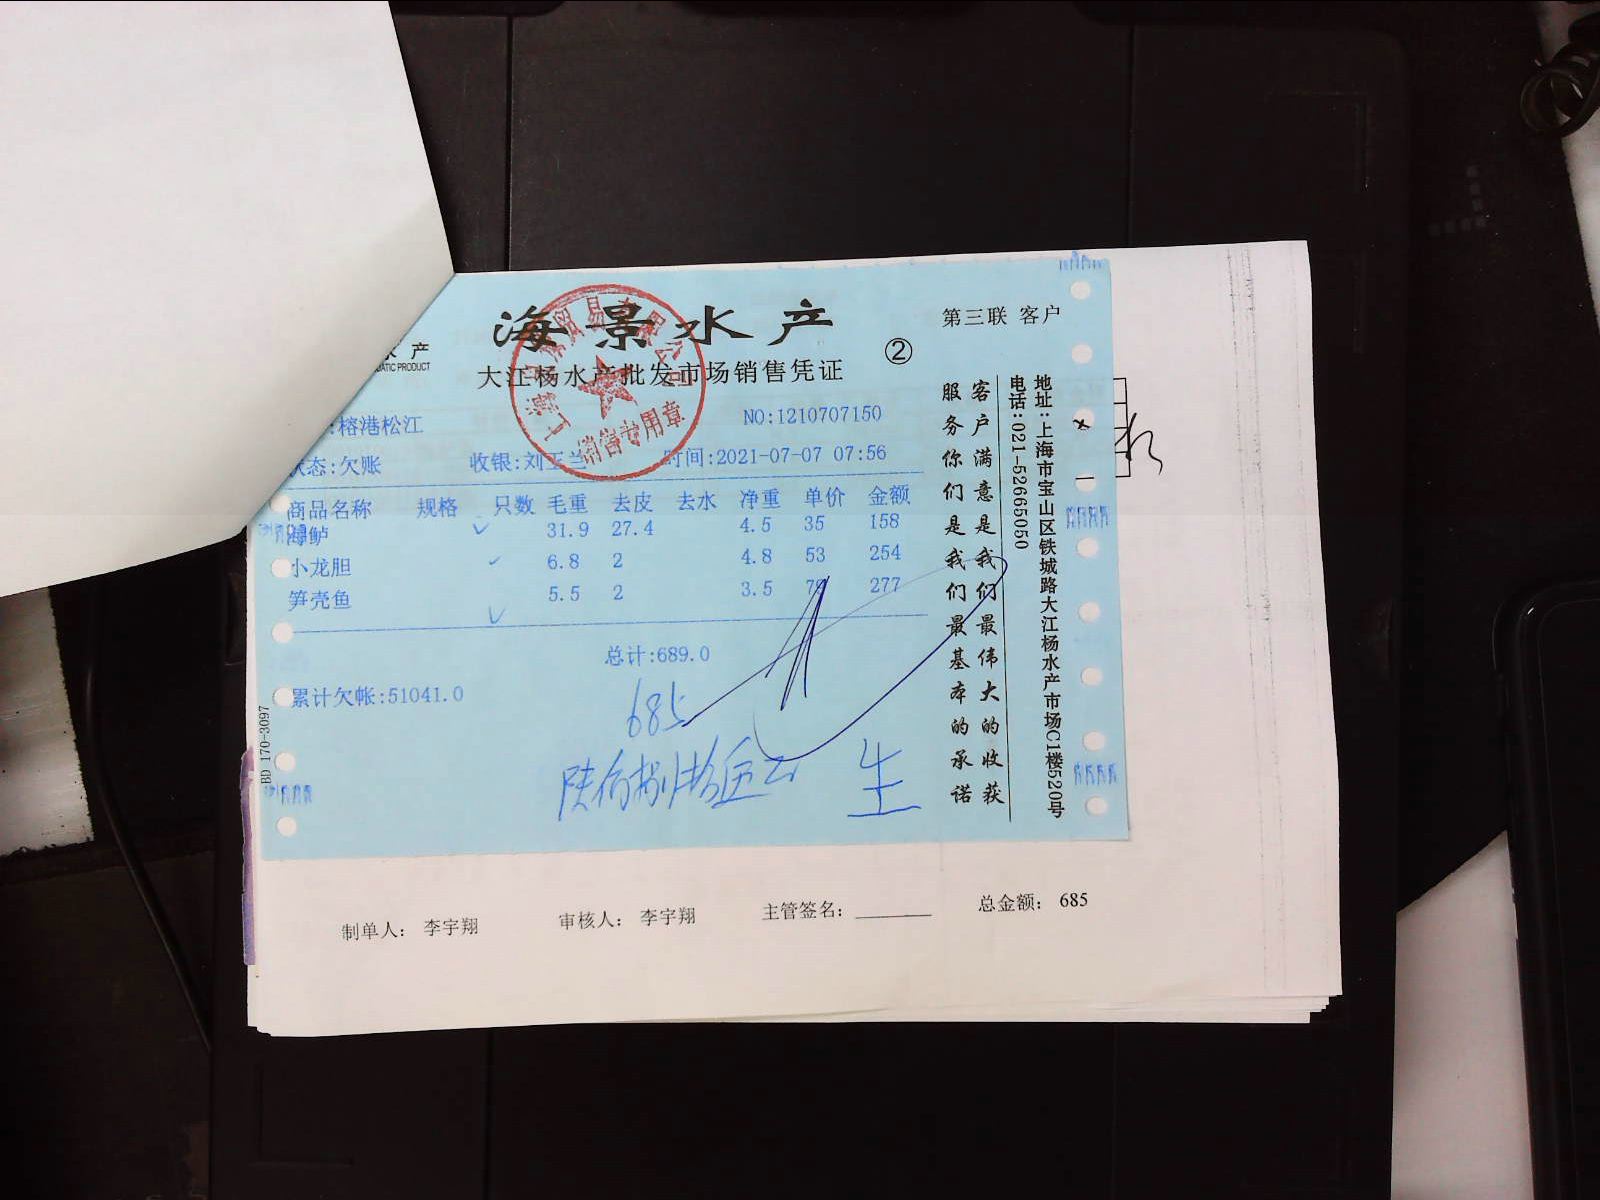 海景水产
大江杨水产批发市场销售凭证
②
第三联 客户
水产
ATIC PRODUCT
:榕港松江
NO:1210707150
状态:欠账
收银:刘玉兰
时间:2021-07-07 07:56
商品名称 规格 只数 毛重 去皮 去水 净重 单价 金额
海鲈 31.9 27.4 4.5 35 158
小龙胆 6.8 2 4.8 53 254
笋壳鱼 5.5 2 3.5 277
总计:689.0
累计欠帐:51041.0
685
陆佰捌拾伍元
生
销售专用章
客户满意是我们最伟大的收获
服务你们是我们最基本的承诺
地址:上海市宝山区铁城路大江杨水产市场C1楼520号
电话:021-52665050
BD 170-3097
制单人: 李宇翔
审核人: 李宇翔
主管签名:
总金额: 685